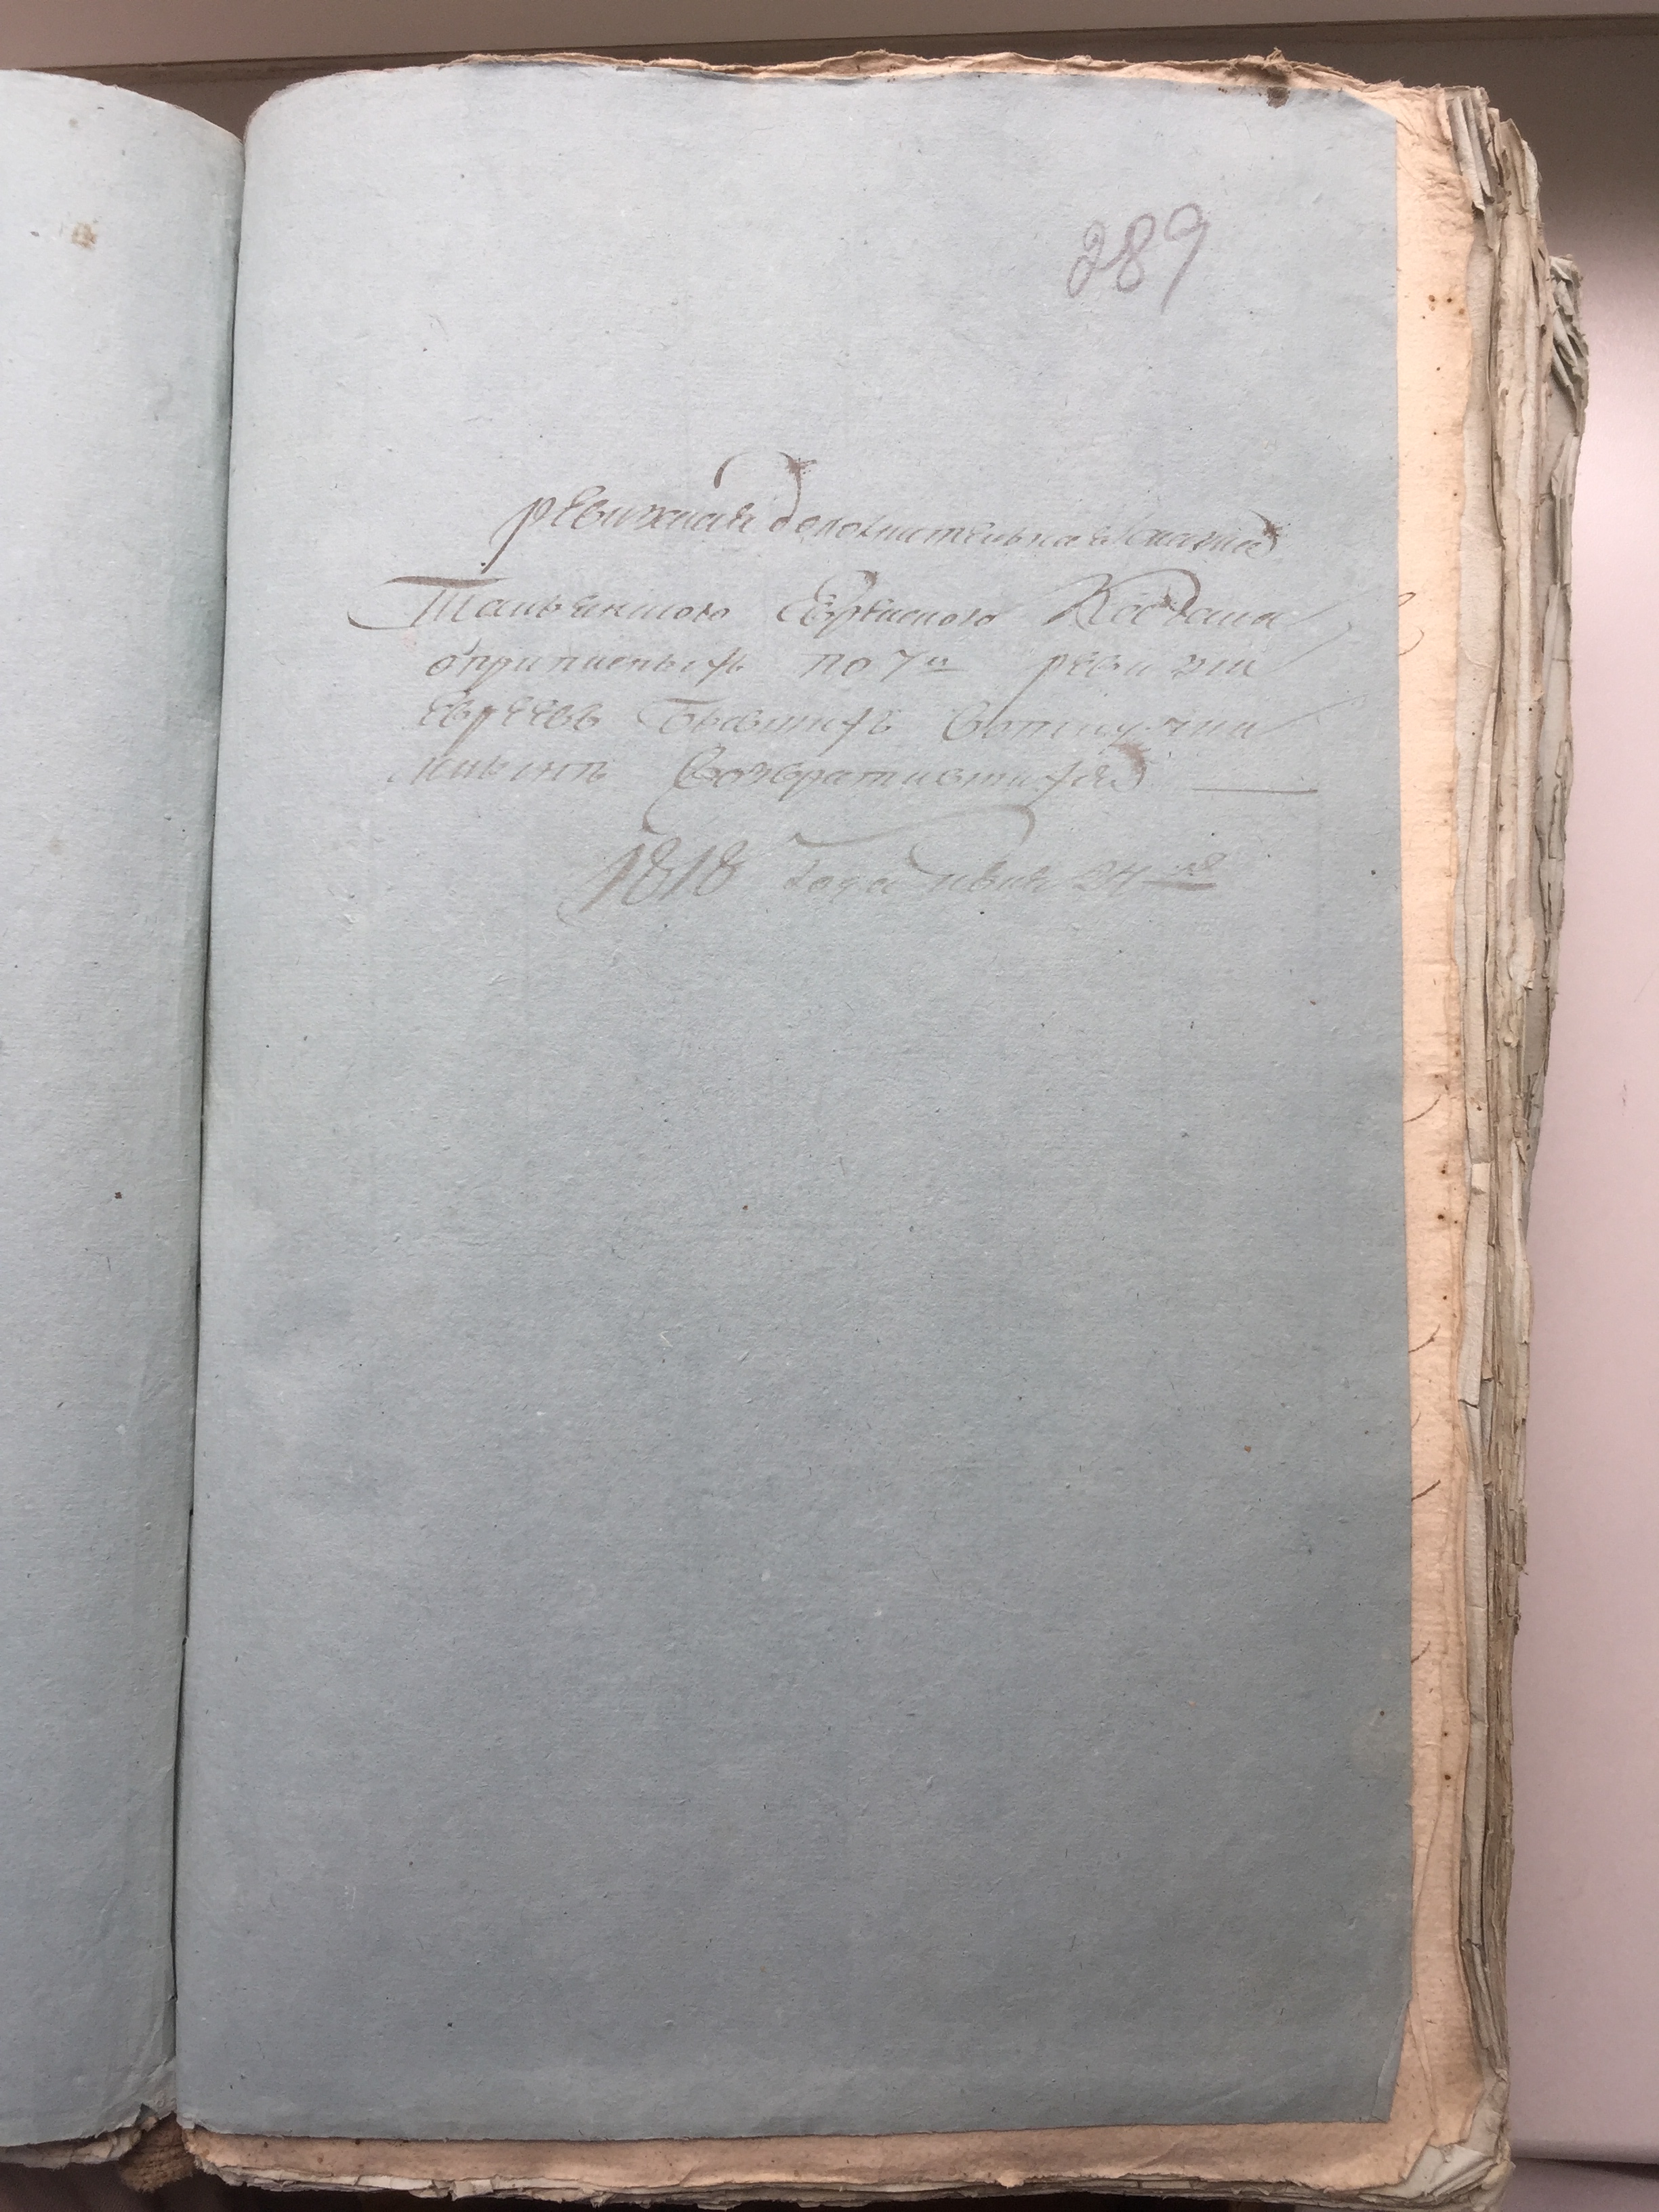 289
ревизная дополнительная сказка
Тальянского Еврейского Кагала
о приписныхъ по 7й ревизии
Евреевъ бывшихъ в отлучки
ныне возвратившихся
1818 года июня 24го